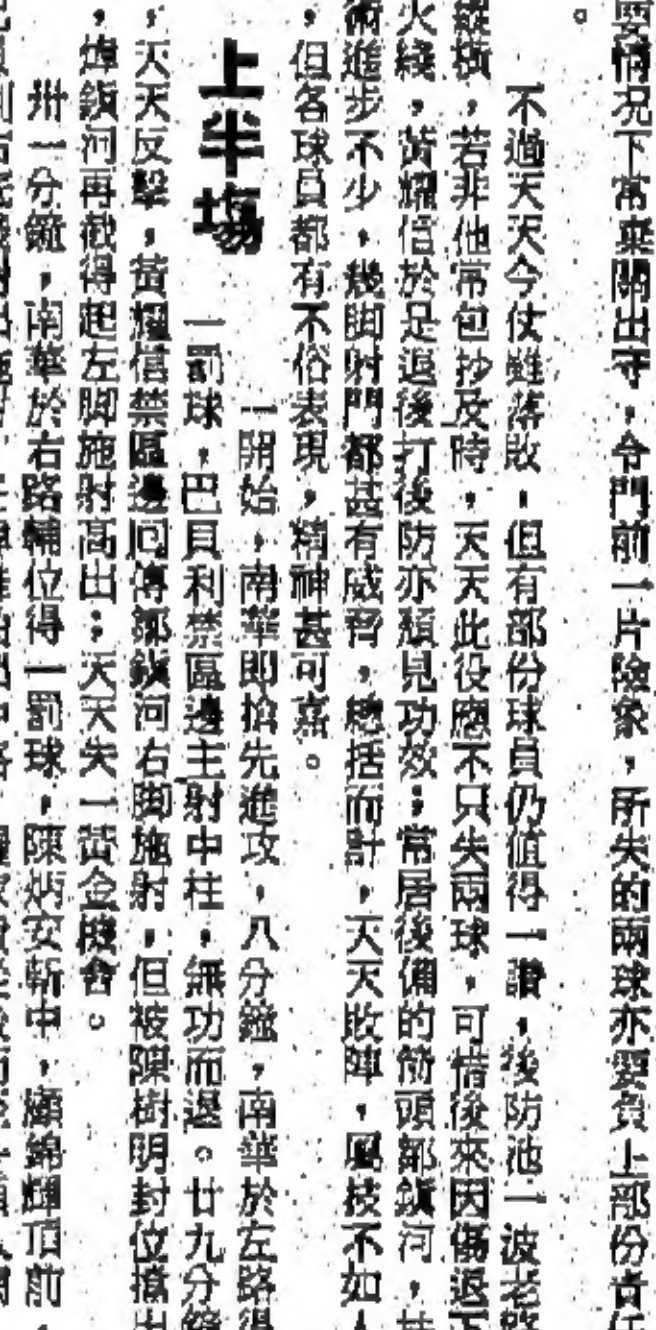 要情況下常棄關出守，令門前一片險象，所失的兩球亦要負上部份責任
。
不過天天今仗雖落敗，但有部份球員仍值得一讚，後防池一波老
縱橫，若非他常包抄及時，天天此役應不只失兩球，可惜後來因傷退下
火綫，黃耀信於是退後打後防亦頗見功效；常居後備的箭頭鄒鎮河，
術進步不少，幾脚射門都甚有威脅，總括而計，天天敗陣，風枝不如
，但各球員都有不俗表現，精神甚可嘉。
上半塲
一開始，南華即搶先進攻，八分鐘，南華於左路得
一罰球，巴貝利禁區邊主射中柱，無功而退。廿九分鐘
，天天反擊，黃耀信禁區邊回傳鄒鎮河右脚施射，但被陳樹明封位擋出
，鄒鎮河再截得起左脚施射高出；天天失一黃金機會。
卅一分鐘，南華於右路輔位得一罰球，陳炳安斬中，顧錦輝頂前，